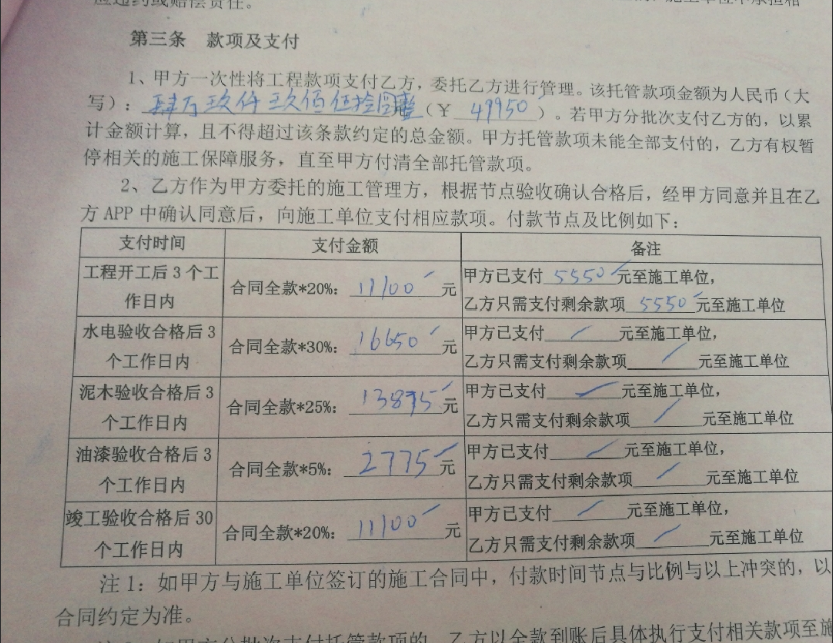 第三条 款项及支付
1、甲方一次性将工程款项支付乙方，委托乙方进行管理。该托管款项金额为人民币（大
写）：肆万玖仟玖佰伍拾圆整（￥ 49950 ）。若甲方分批次支付乙方的，以累
计金额计算，且不得超过该条款约定的总金额。甲方托管款项未能全部支付的，乙方有权暂
停相关的施工保障服务，直至甲方付清全部托管款项。
2、乙方作为甲方委托的施工管理方，根据节点验收确认合格后，经甲方同意并且在乙
方 APP 中确认同意后，向施工单位支付相应款项。付款节点及比例如下：
支付时间 支付金额 备注
工程开工后 3 个工作日内 合同全款*20%: 11100 元 甲方已支付 5550 元至施工单位，
乙方只需支付剩余款项 5550 元至施工单位
水电验收合格后 3 个工作日内 合同全款*30%: 16650 元 甲方已支付 / 元至施工单位，
乙方只需支付剩余款项 / 元至施工单位
泥木验收合格后 3 个工作日内 合同全款*25%: 13875 元 甲方已支付 / 元至施工单位，
乙方只需支付剩余款项 / 元至施工单位
油漆验收合格后 3 个工作日内 合同全款*5%: 2775 元 甲方已支付 / 元至施工单位，
乙方只需支付剩余款项 / 元至施工单位
竣工验收合格后 30 个工作日内 合同全款*20%: 11100 元 甲方已支付 / 元至施工单位，
乙方只需支付剩余款项 / 元至施工单位
注 1：如甲方与施工单位签订的施工合同中，付款时间节点与比例与以上冲突的，以
合同约定为准。
甲方分批次支付托管款项的，乙方以全款到账后具体执行支付相关款项至施